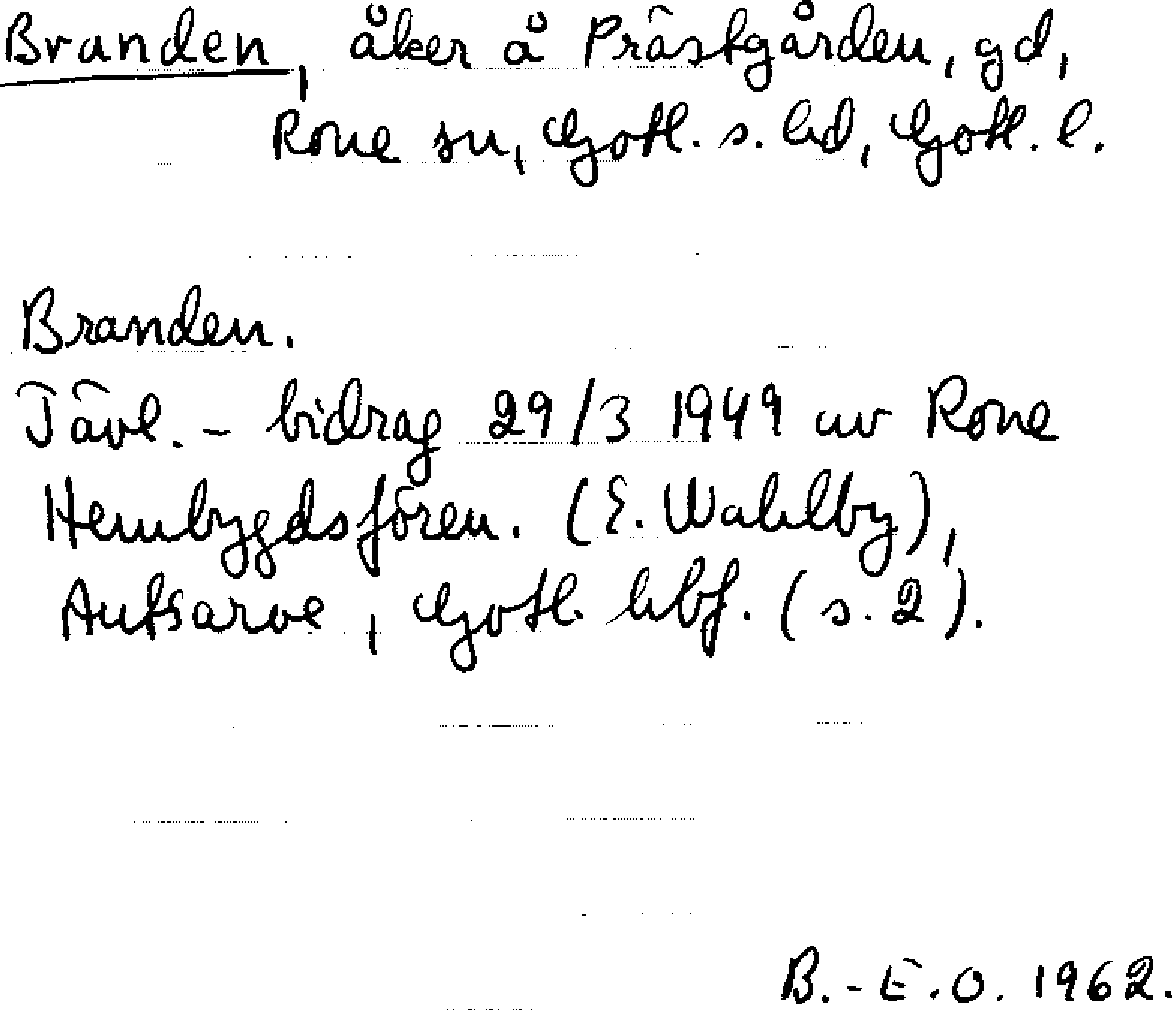 Branden, åker å Prästgården, gd,
Rone sn, Gotl. s. hd, Gotl. l.
Branden.
Tävl.- bidrag 29/3 1949 av Rone
Hembygdsfören. (E. Wahlby),
Autsarve, Gotl. hbf. (s. 2).
B.-E.O. 1962.